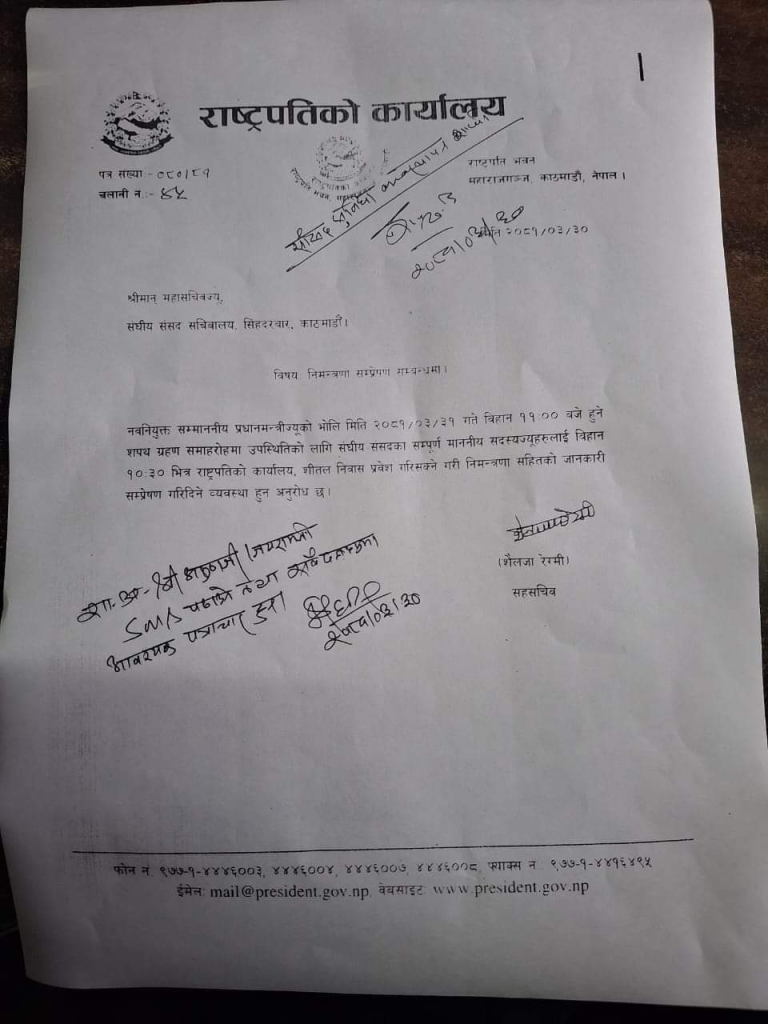 राष्ट्रपतिको कार्यालय
पत्र संख्या:-०८०/८१
चलानी नं.:- ४५
राष्ट्रपति भवन
महाराजगञ्ज, काठमाडौं, नेपाल ।
मिति २०८१/०३/३०
२०८१/०३/३०
श्रीमान् महासचिवज्यू,
संघीय संसद सचिवालय, सिंहदरबार, काठमाडौं।
विषय: निमन्त्रणा सम्प्रेषण सम्बन्धमा।
नवनियुक्त सम्माननीय प्रधानमन्त्रीज्यूको भोलि मिति २०८१/०३/३१ गते विहान ११:०० बजे हुने
शपथ ग्रहण समाहरोहमा उपस्थितिको लागि संघीय संसदका सम्पूर्ण माननीय सदस्यज्यूहरुलाई विहान
१०:३० भित्र राष्ट्रपतिको कार्यालय, शीतल निवास प्रवेश गरिसक्ने गरी निमन्त्रणा सहितको जानकारी
सम्प्रेषण गरिदिने व्यवस्था हुन अनुरोध छ।
(शैलजा रेग्मी)
सहसचिव
शा.अ.-श्री
SMS पठाउने तथा
आवश्यक पत्राचार हुन।
२०८१/०३/३०
फोन नं ९७७-१-४४४६००३, ४४४६००४, ४४४६००७, ४४४६००८, फ्याक्स नं ९७७-१-४४१६४९५
ईमेल: mail@president.gov.np, वेबसाइट: www.president.gov.np